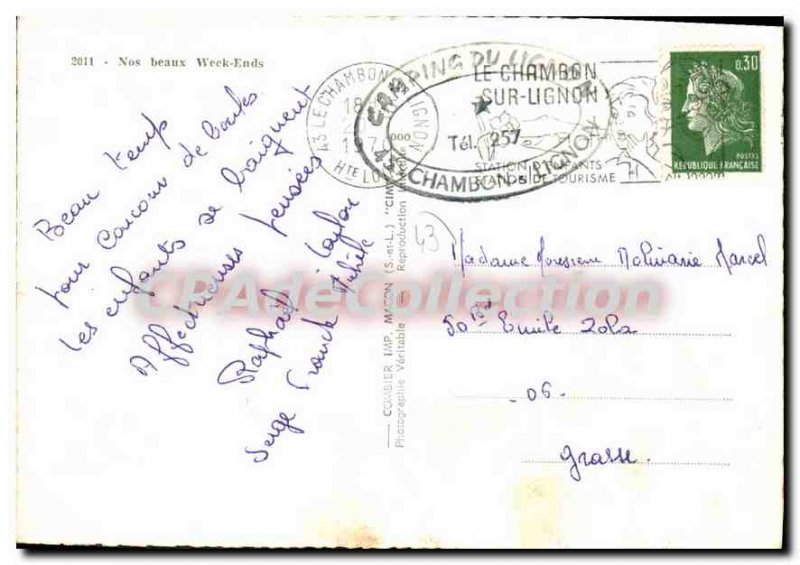 2011 - Nos beaux Week-Ends
43 LE CHAMBON LIGNON
18
197
Hte LOIRE
CAMPING DU LIGNON
Tél. 257
43 CHAMBON s/ LIGNON
LE CHAMBON
SUR-LIGNON
1000
STATION D'ENFANTS
DE TOURISME
0,30
POSTES
REPUBLIQUE FRANÇAISE
Beau temps
pour concour de boules
les enfants se baignent
Affectueuses pensées
Raphaël Loulou
Serge Franck Michèle
43
COMBIER IMP. MACON (S.-et-L.) "CIM"
Photographie Véritable Reproduction
CPAdeCollection
Madame Monsieur Molinarie Marcel
50 Bd Emile Zola
- 06 -
Grasse